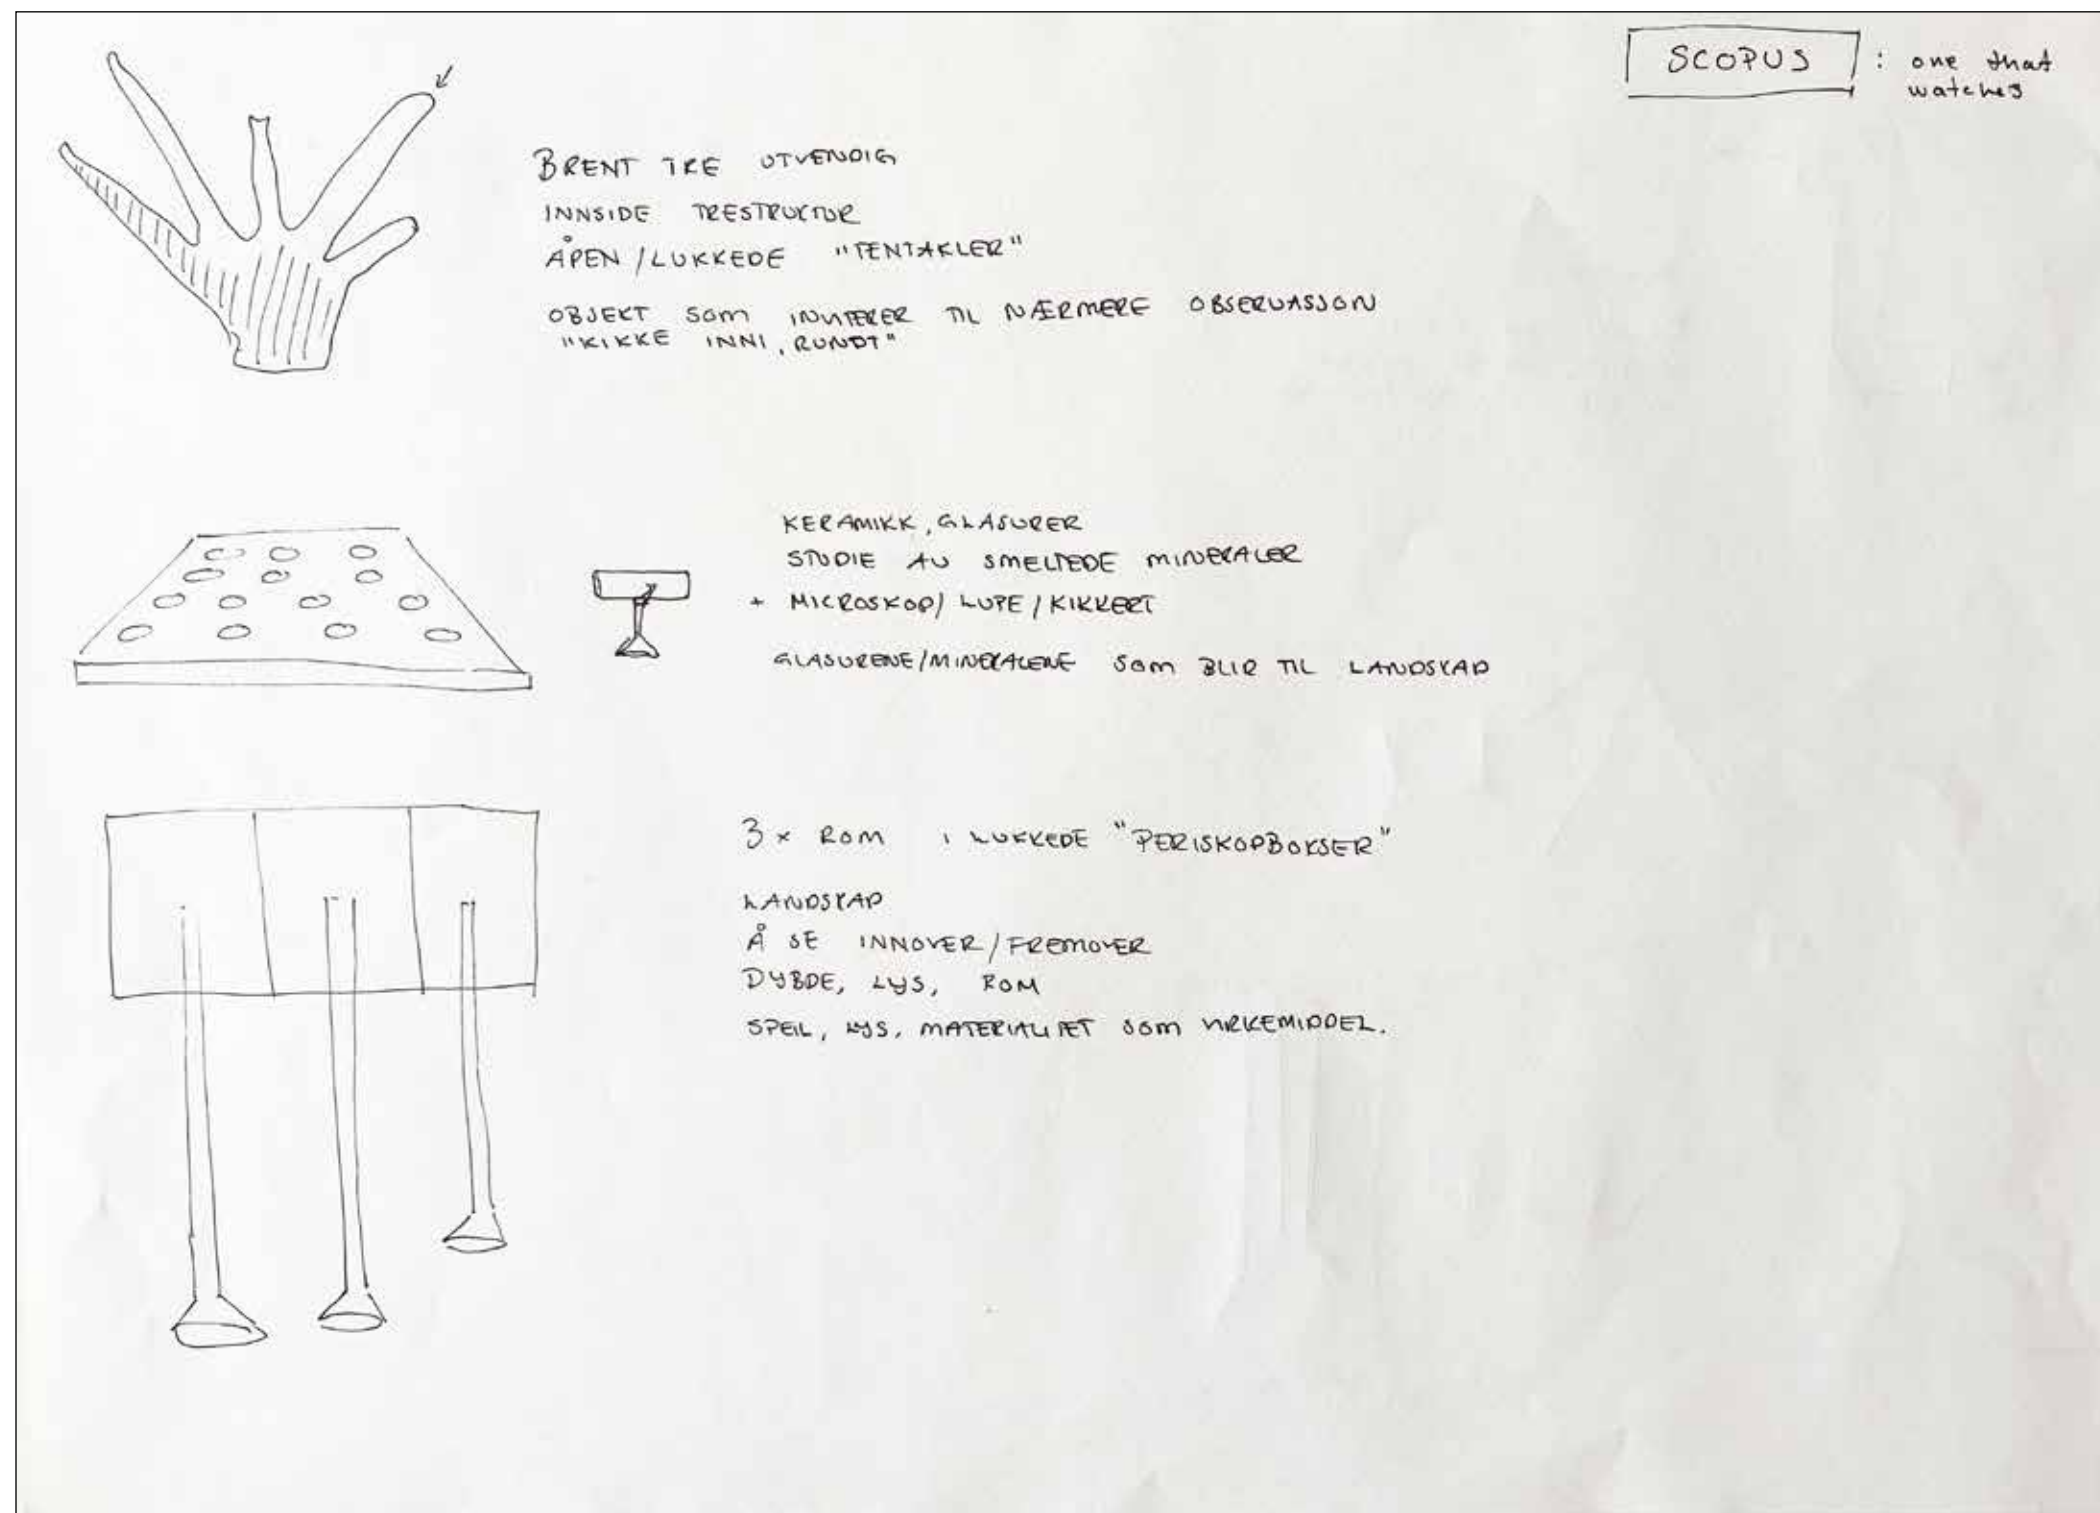 SCOPUS : one that
watches
BRENT TRE UTVENDIG
INNSIDE TRESTRUKTUR
ÅPEN / LUKKEDE "TENTAKLER"
OBJEKT SOM INVITERER TIL NÆRMERE OBSERVASJON
"KIKKE INNI, RUNDT"
KERAMIKK, GLASURER
STUDIE AV SMELTEDE MINERALER
+ MICROSKOP / LUPE / KIKKERT
GLASURENE/MINERALENE SOM BLIR TIL LANDSKAP
3 x ROM I LUKKEDE "PERISKOPBOKSER"
LANDSKAP
Å SE INNOVER / FREMOVER
DYBDE, LYS, ROM
SPEIL, LYS, MATERIALITET SOM VIRKEMIDDEL.